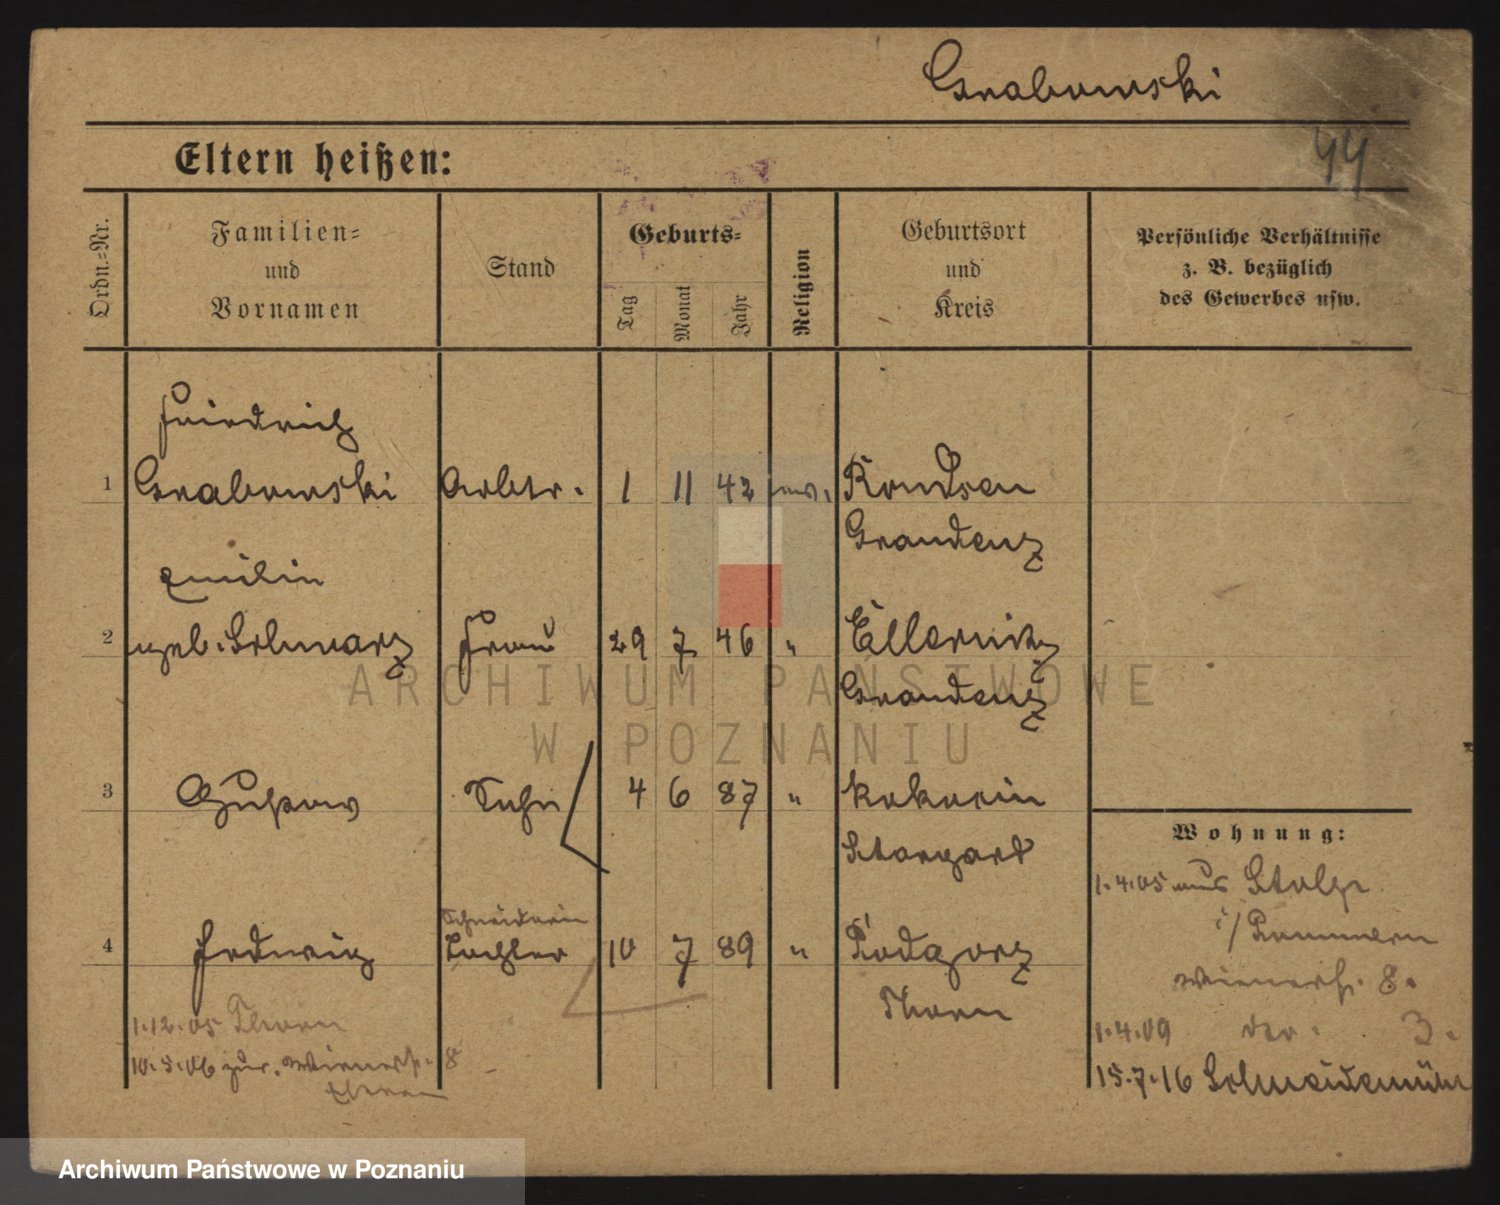 Grabowski
44
Eltern heißen:
Ordn.=Nr.
Familien=
und
Vornamen
Stand
Geburts=
Tag
Monat
Jahr
Religion
Geburtsort
und
Kreis
Persönliche Verhältnisse
z. B. bezüglich
des Gewerbes usw.
Friedrich
1 Grabowski Arbtr. 1 11 42 ev. Rondsen
Graudenz
Emilie
2 geb. Schwarz Frau 29 7 46 " Ellernitz
Graudenz
3 Gustav Sohn 4 6 87 " Kokorin
Stargard
Wohnung:
1.4.05 aus Stolp
i/ Pommern
Wienerstr. 8.
1.4.09 3.
15.7.16 Schneidemühl
Schneiderin
4 Hedwig Tochter 10 7 89 " Podgorz
Thorn
1.12.05 Thorn
10.5.06 zur. Wienerstr. 8
Eltern
ARCHIWUM PAŃSTWOWE
W POZNANIU
Archiwum Państwowe w Poznaniu